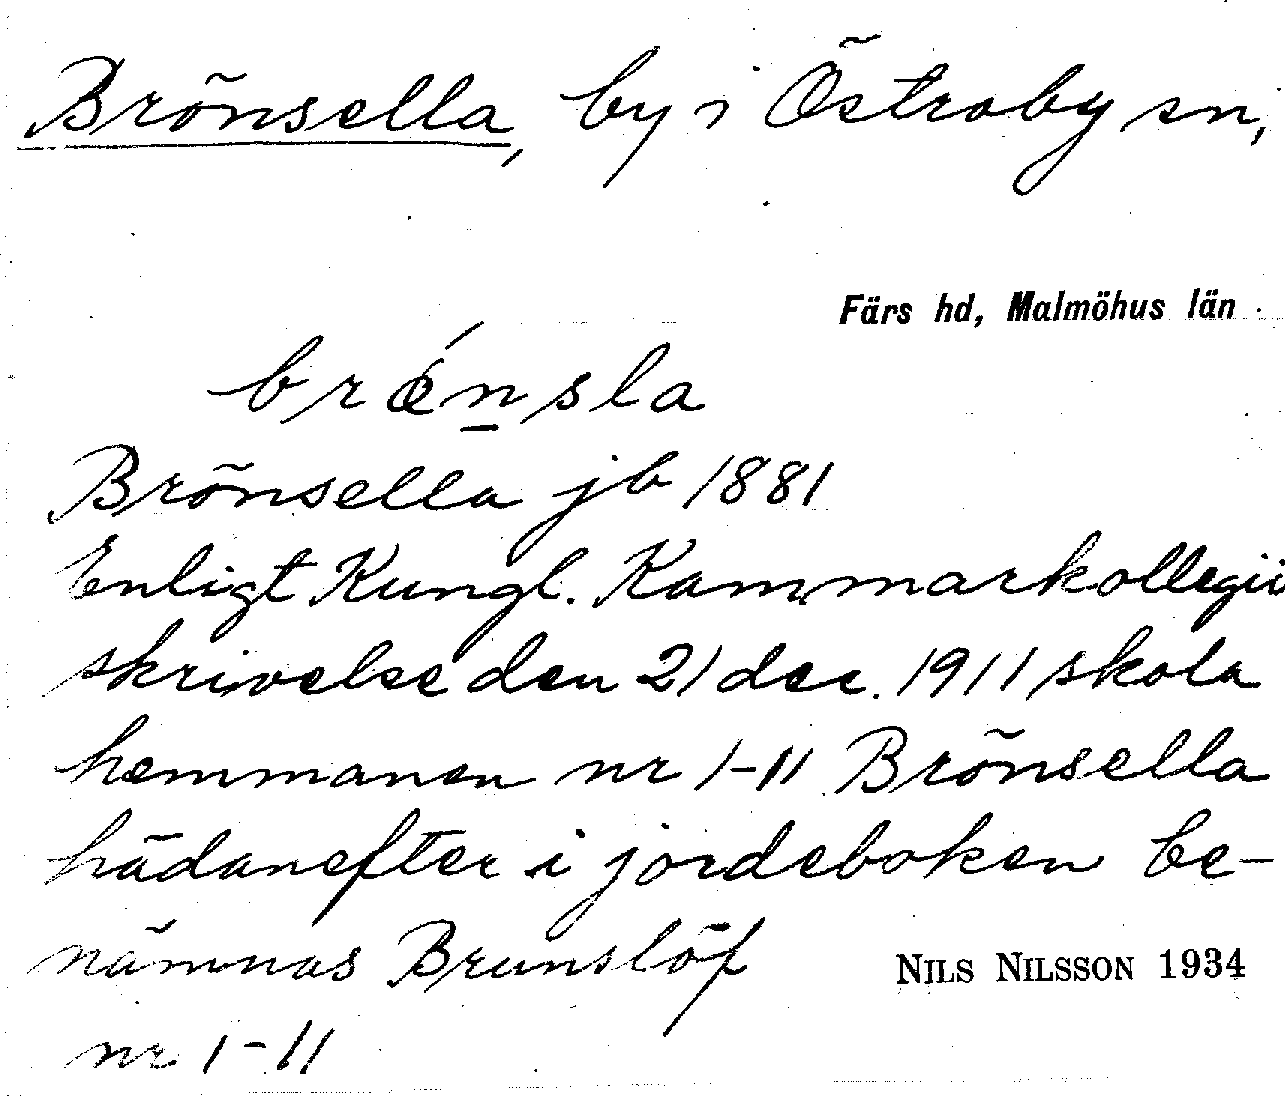 Brönsella, by i Östraby sn,
Färs hd, Malmöhus län
brǿn̲sla
Brönsella jb 1881
Enligt Kungl. Kammarkollegii
skrivelse den 21 dec. 1911 skola
hemmanen nr 1-11 Brönsella
hädanefter i jordeboken be-
nämnas Brunslöf
nr 1-11
NILS NILSSON 1934